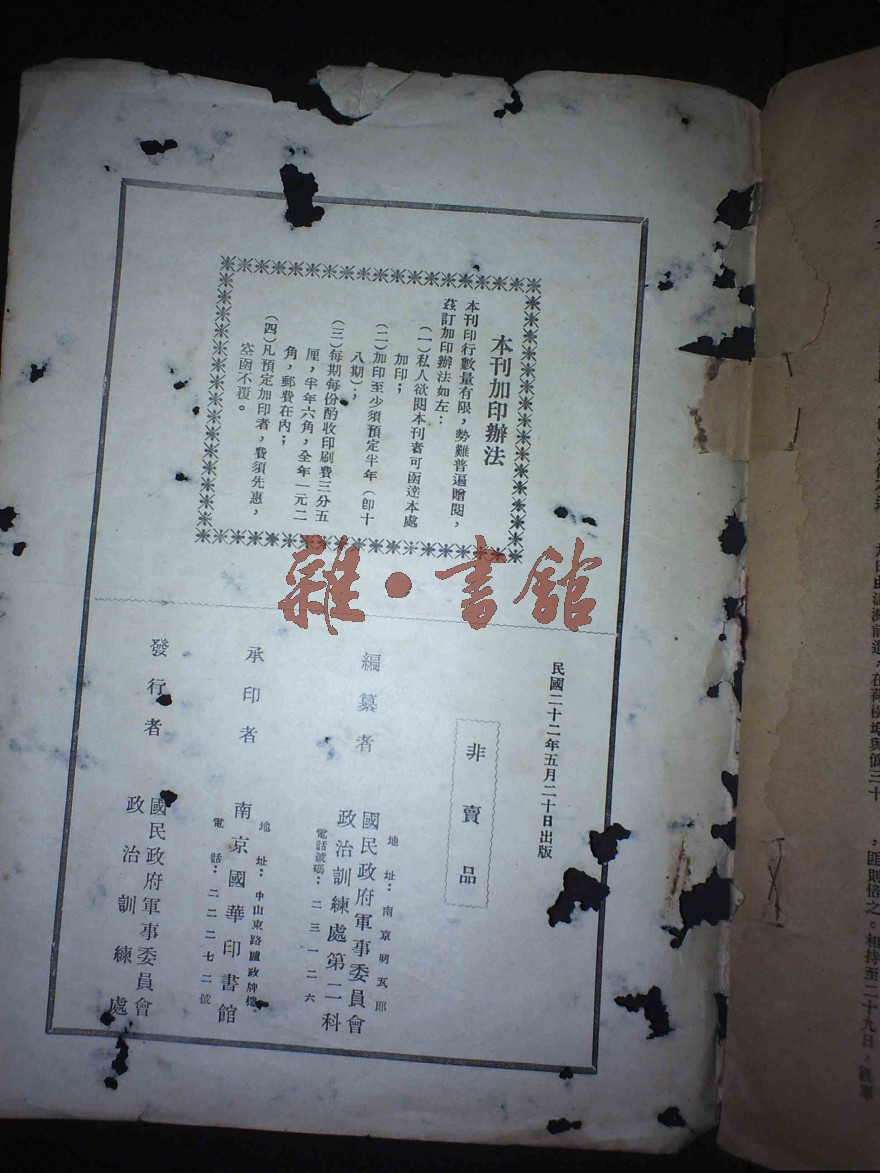 本刊加印辦法
本刊印行數量有限，勢難普遍贈閱，
茲訂加印辦法如左：
（一）私人欲閱本刊者可函達本處
加印；
（二）加印至少須預定半年（即十
八期）；
（三）每期每份酌收印刷費三分五
厘，半年六角，全年一元二
角，郵費在內；
（四）凡預定加印者，費須先惠，
空函不覆。
民國二十二年五月二十日出版
非賣品
編纂者
地址：南京明瓦廊
國民政府軍事委員會
政治訓練處第二科
電話號碼：二三一二六
承印者
地址：中山東路盧政牌樓
南京國華印書館
電話：二二二七二號
發行者
國民政府軍事委員會
政治訓練處
雜·書館
在荷樹埠與僞三十
，匪則倍之。相持至二十九日，